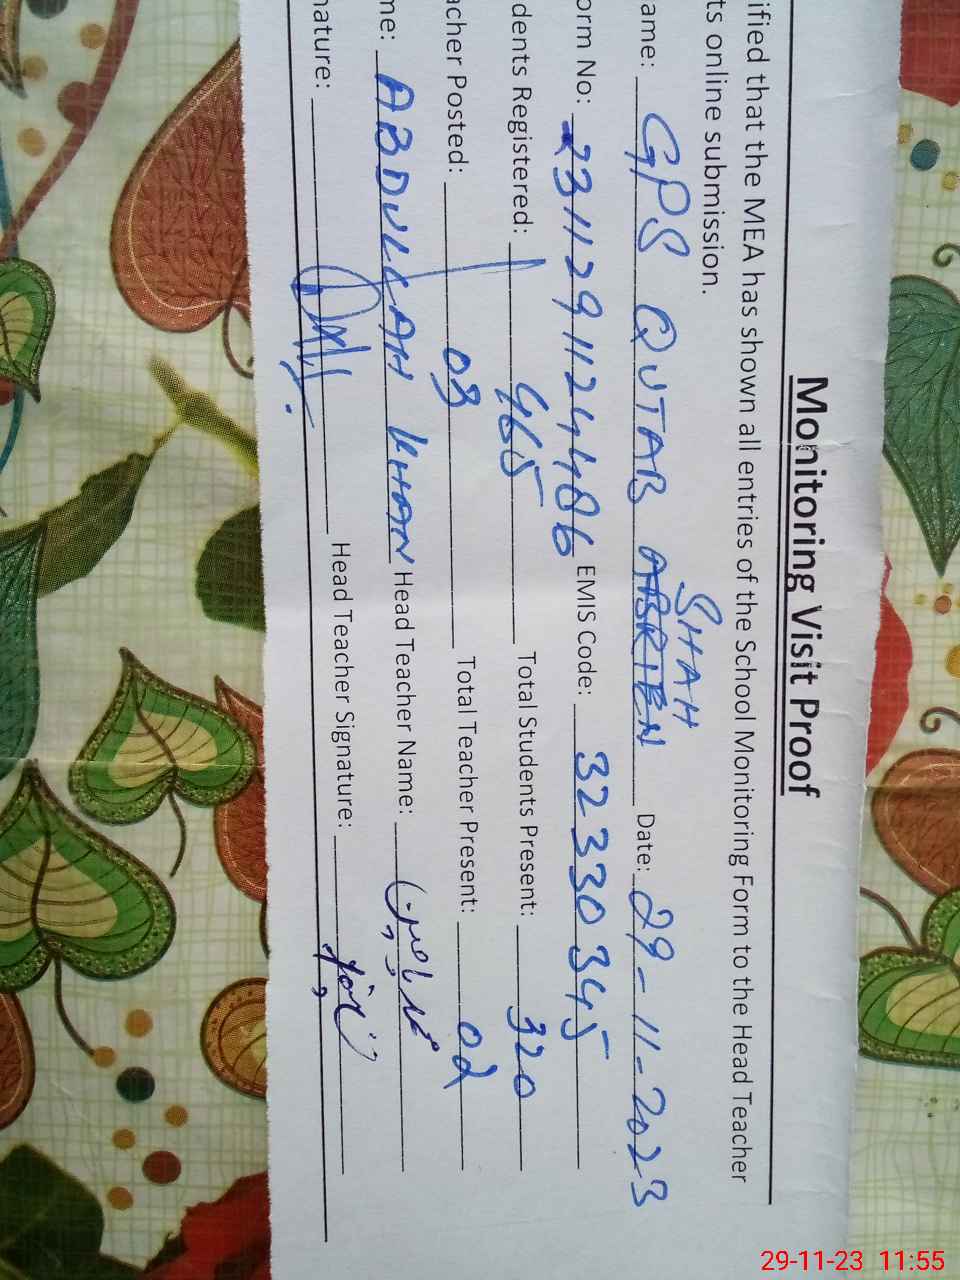 Monitoring Visit Proof
ified that the MEA has shown all entries of the School Monitoring Form to the Head Teacher
ts online submission.
SHAH
ame: GPS QUTAB Date: 29-11-2023
orm No: 23112911244486 EMIS Code: 32330345
dents Registered: 465 Total Students Present: 320
acher Posted: 08 Total Teacher Present: 02
me: ABDULLAH KHAN Head Teacher Name:
nature: Head Teacher Signature:
29-11-23 11:55